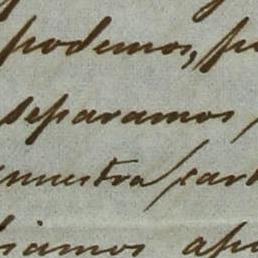 podemos, p
separamos
nuestra car
iamos apo